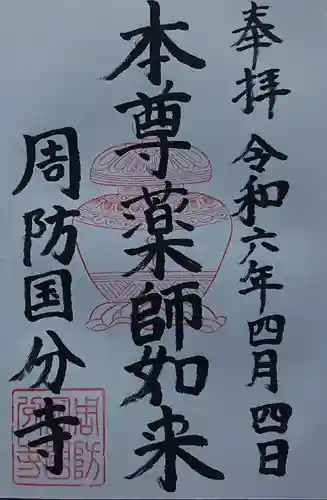 奉拝 令和六年四月四日
本尊薬師如来
周防国分寺